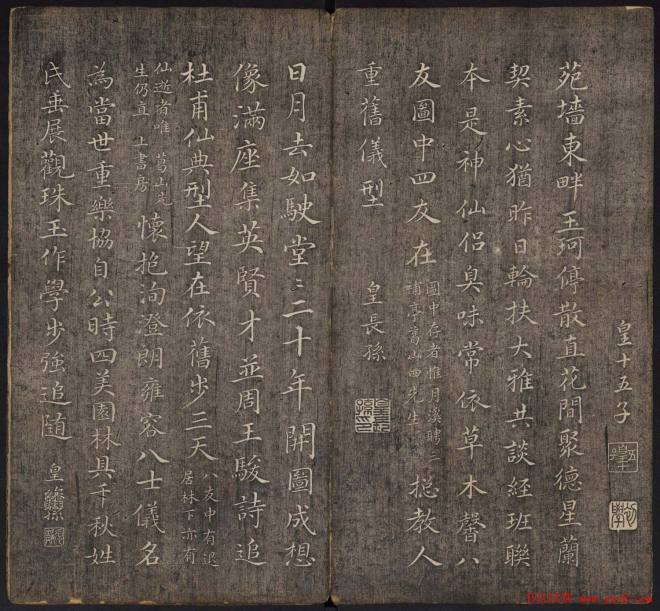 皇十五子
苑墻東畔玉珂停散直花間聚德星蘭
契素心猶昨日輪扶大雅共談經班聯
本是神仙侶臭味常依草木馨八
友圖中四友在
圖中存者惟月溪聘三
補亭葛山四先生
摠教人
重舊儀型
皇長孫
日月去如駛堂〻二十年開圖成想
像滿座集英賢才並周王駿詩追
杜甫仙典型人望在依舊步三天
八友中有退
居林下亦有
仙逝者唯葛山先
生仍直上書房
懷抱洵澄朗雍容八士儀名
為當世重樂協自公時四美園林具千秋姓
氏垂展觀珠玉作學步強追隨
皇孫